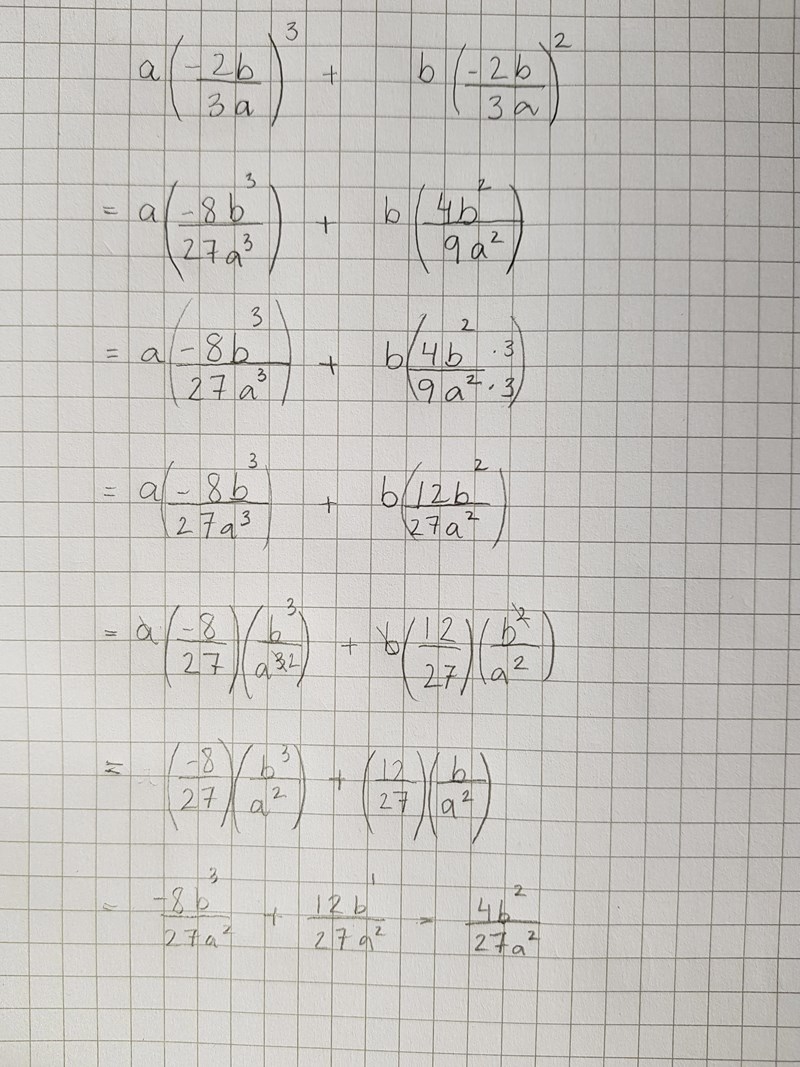 a(-2b/3a)³ + b(-2b/3a)²
= a(-8b³/27a³) + b(4b²/9a²)
= a(-8b³/27a³) + b(4b²·3/9a²·3)
= a(-8b³/27a³) + b(12b²/27a²)
= a(-8/27)(b³/a³²) + b(12/27)(b²/a²)
= (-8/27)(b³/a²) + (12/27)(b/a²)
= -8b³/27a² + 12b¹/27a² = 4b²/27a²